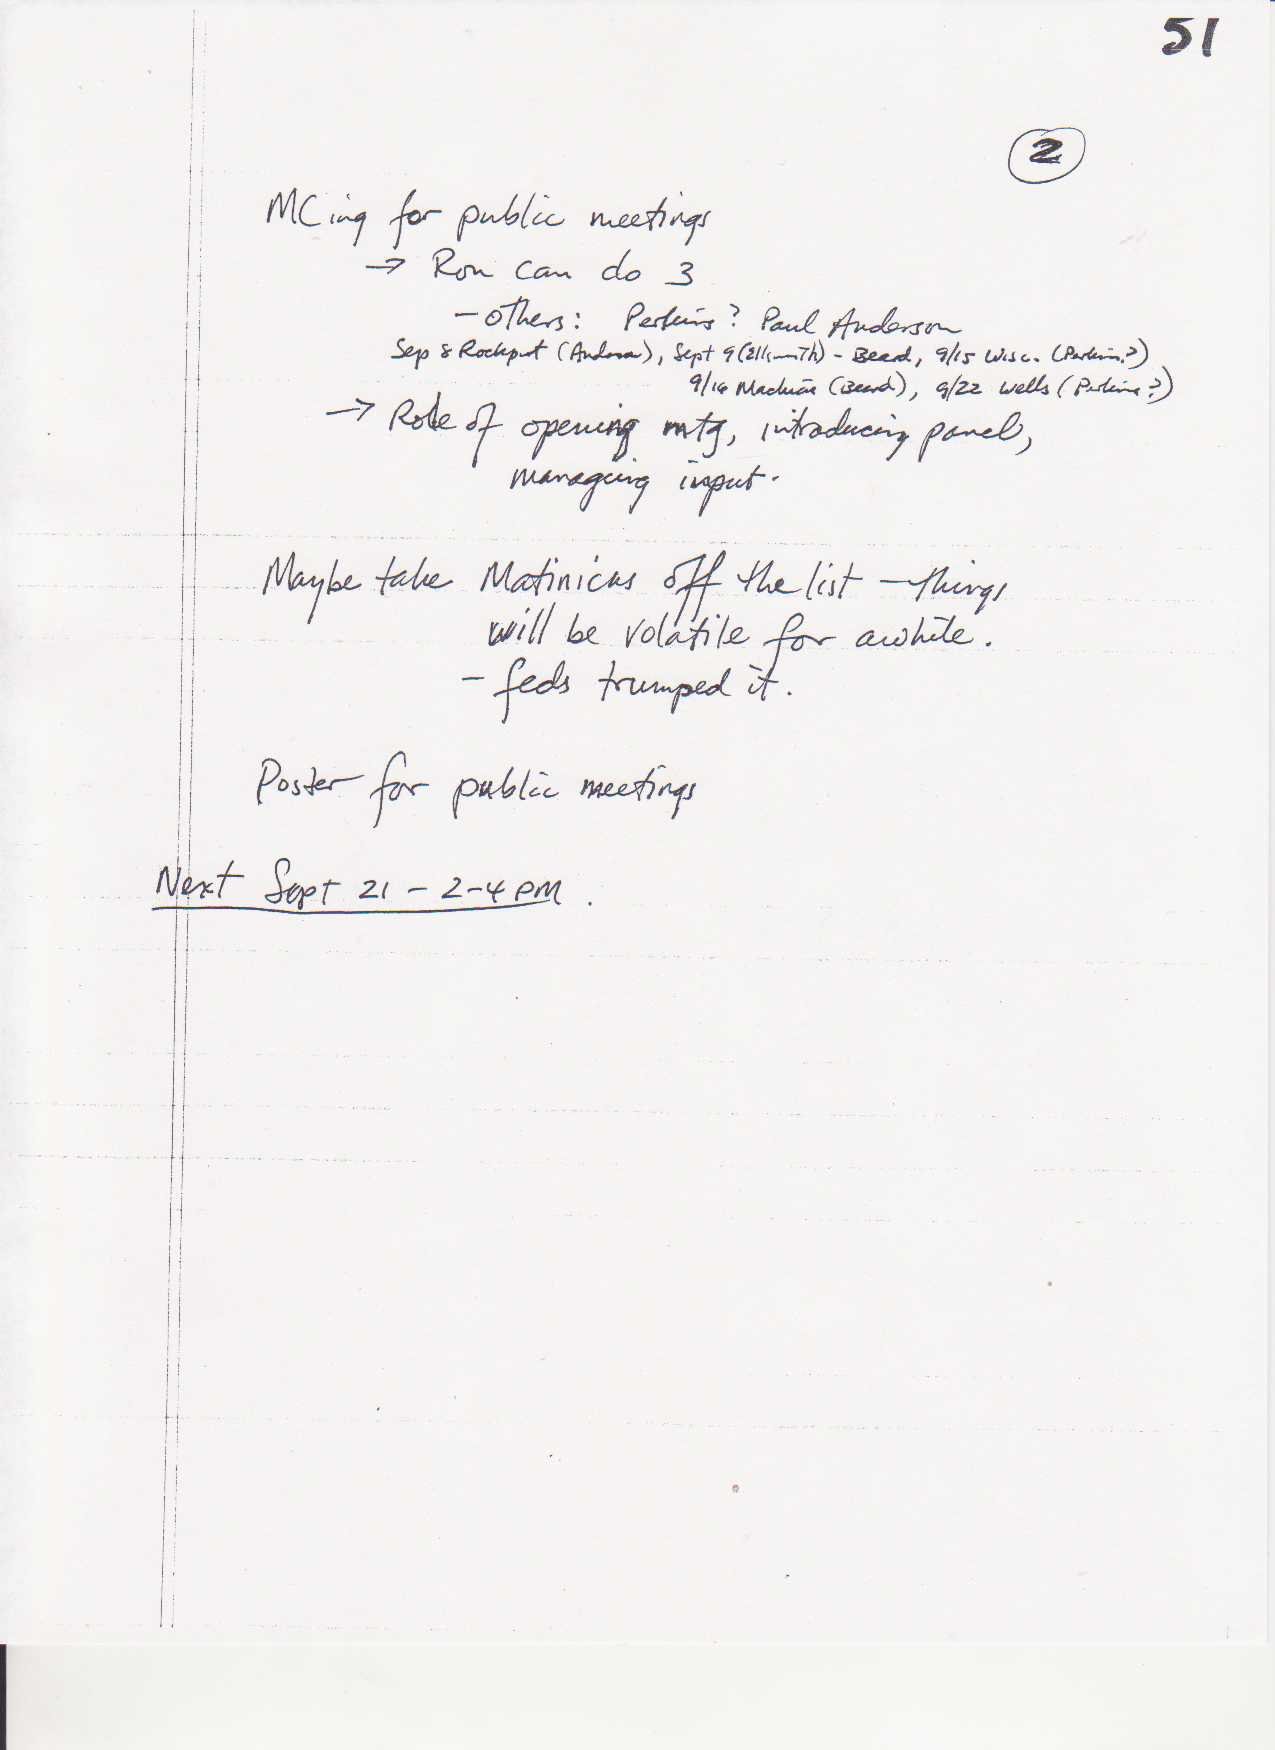 51
2
MCing for public meetings
→ Ron can do 3
- others: Perkins? Paul Anderson
Sep 8 Rockport (Anderson), Sept 9 (Ellsworth) - Beard, 9/15 Wisc. (Perkins?)
9/16 Machias (Beard), 9/22 Wells (Perkins?)
→ Role of opening mtg, introducing panel,
managing input.
Maybe take Matinicus off the list - things
will be volatile for awhile.
- feds trumped it.
Poster for public meetings
Next Sept 21 - 2-4 PM.